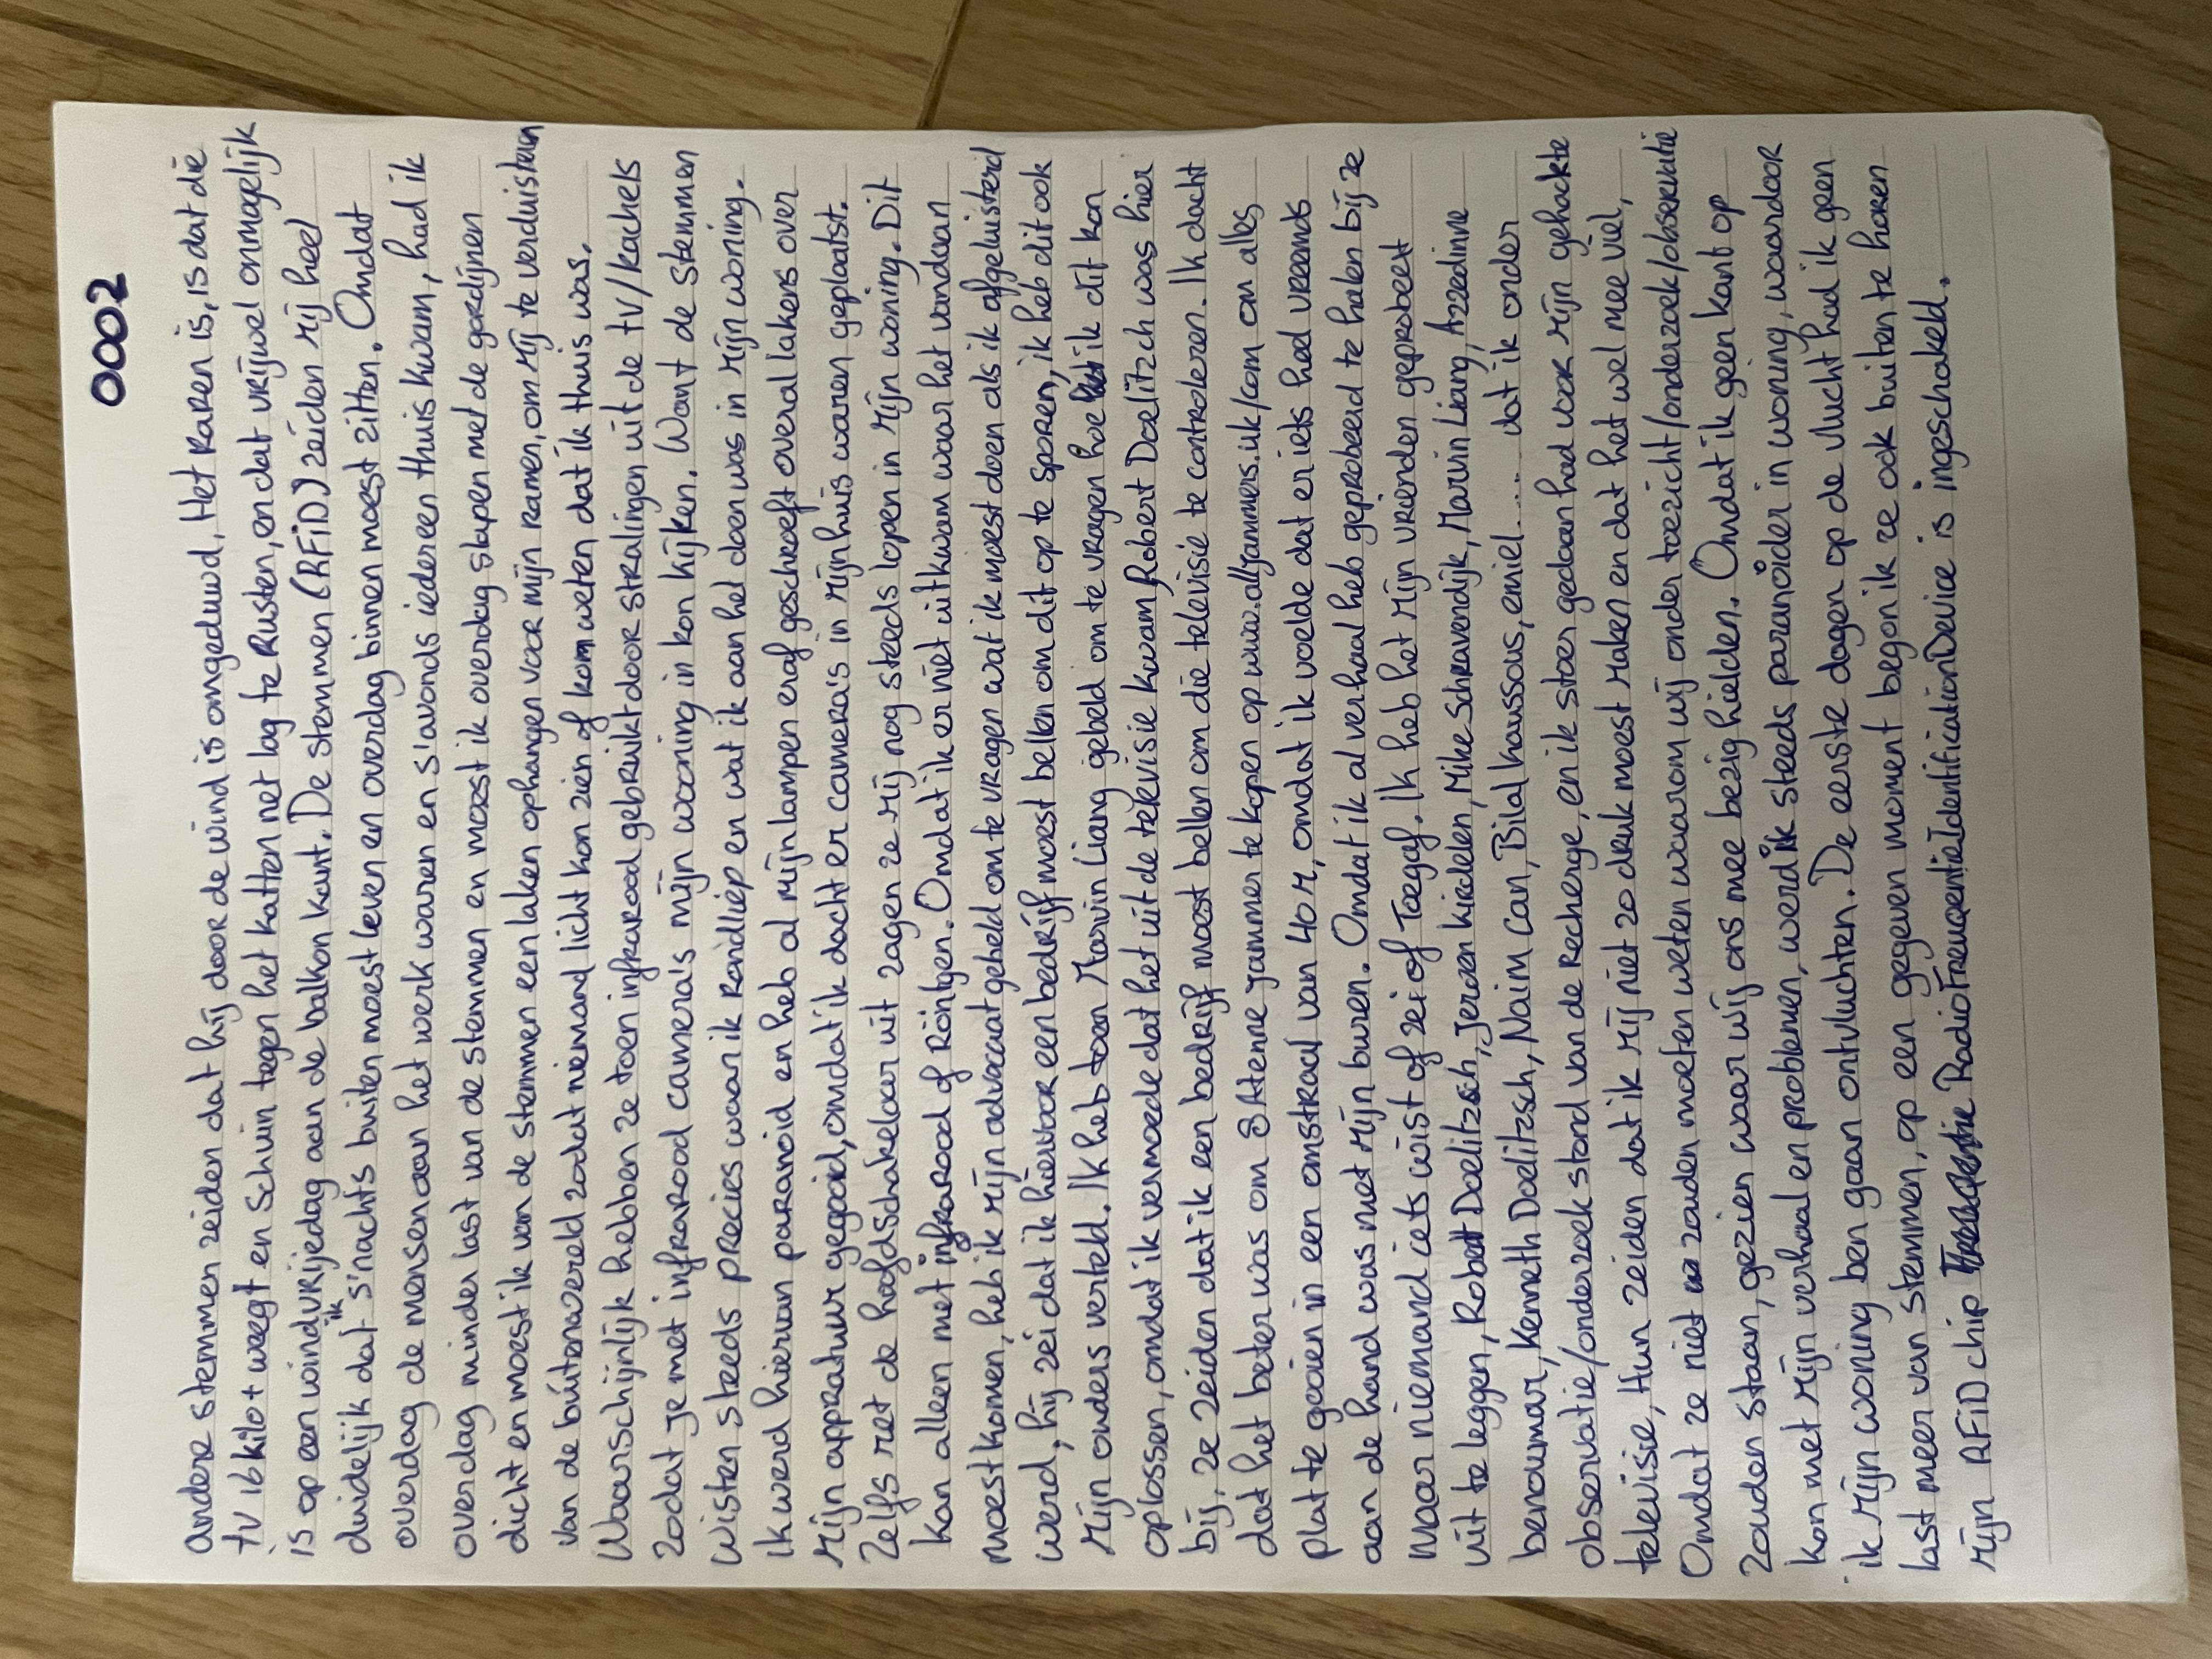 0002
andere stemmen zeiden dat hij door de wind is omgeduwd. Het raren is, is dat die
tv 16 kilo+ weegt en schuin tegen het katten net lag te rusten, en dat vrijwel onmogelijk
is op een windvrijedag aan de balkon kant. De stemmen (RFiD) zeiden mij heel
duidelijk dat ik s'nachts buiten moest leven en overdag binnen moest zitten. Omdat
overdag de mensen aan het werk waren en s'avonds iedereen thuis kwam, had ik
overdag minder last van de stemmen en moest ik overdag slapen met de gordijnen
dicht en moest ik van de stemmen een laken ophangen voor mijn ramen, om mij te verduisteren
van de buitenwereld zodat niemand licht kon zien of kom weten dat ik thuis was.
Waarschijnlijk hebben ze toen infrarood gebruikt door stralingen uit de tv/kachels
zodat je met infrarood camera's mijn woning in kon kijken. Want de stemmen
wisten steeds precies waar ik rondliep en wat ik aan het doen was in mijn woning.
ik werd hiervan paranoid en heb al mijn lampen eraf geschroeft overal lakens over
mijn appratuur gegooid, omdat ik dacht er camera's in mijn huis waren geplaatst.
Zelfs met de hoofdschakelaar uit zagen ze mij nog steeds lopen in mijn woning. Dit
kan alleen met infrarood of Röntgen. Omdat ik er niet uitkwam waar het vandaan
moest komen, heb ik mijn advocaat gebeld om te vragen wat ik moest doen als ik afgeluisterd
werd, hij zei dat ik hiervoor een bedrijf moest bellen om dit op te sporen, ik heb dit ook
mijn ouders verteld. Ik heb toen Marvin Liang gebeld om te vragen hoe ik dit kon
oplossen, omdat ik vermoede dat het uit de televisie kwam Robert Doelitzch was hier
bij, ze zeiden dat ik een bedrijf moest bellen om die televisie te controleren. Ik dacht
dat het beter was om 8 Attenne jammer te kopen op www.alljammers.uk/com om alles
plat te gooien in een omstraal van 40 M, omdat ik voelde dat er iets had vreemds
aan de hand was met mijn buren. Omdat ik al verhaal heb geprobeerd te halen bij ze
maar niemand iets wist of zei of Toegaf. Ik heb het mijn vrienden geprobeert
uit te leggen, Robert Doelitzsch, Jeroen kindelen, Mike Schravendijk, Marvin Liang, Azzedinne
benoumar, Kenneth Doelitzsch, Naim Can, Bilal houssous, emiel.... dat ik onder
observatie/onderzoek stond van de Recherge, en ik stoer gedaan had voor mijn gehackte
televisie, Hun zeiden dat ik mij niet zo druk moest maken en dat het wel mee viel,
Omdat ze niet zouden moeten weten waarom wij onder toezicht/onderzoek/observatie
zouden staan, gezien waar wij ons mee bezig hielden. Omdat ik geen kant op
kon met mijn verhaal en problemen, werd ik steeds paranoïder in woning, waardoor
ik mijn woning ben gaan ontvluchten. De eerste dagen op de vlucht had ik geen
last meer van stemmen, op een gegeven moment begon ik ze ook buiten te horen
mijn RFiD chip RadioFrequentieIdentificationDevice is ingeschakeld.